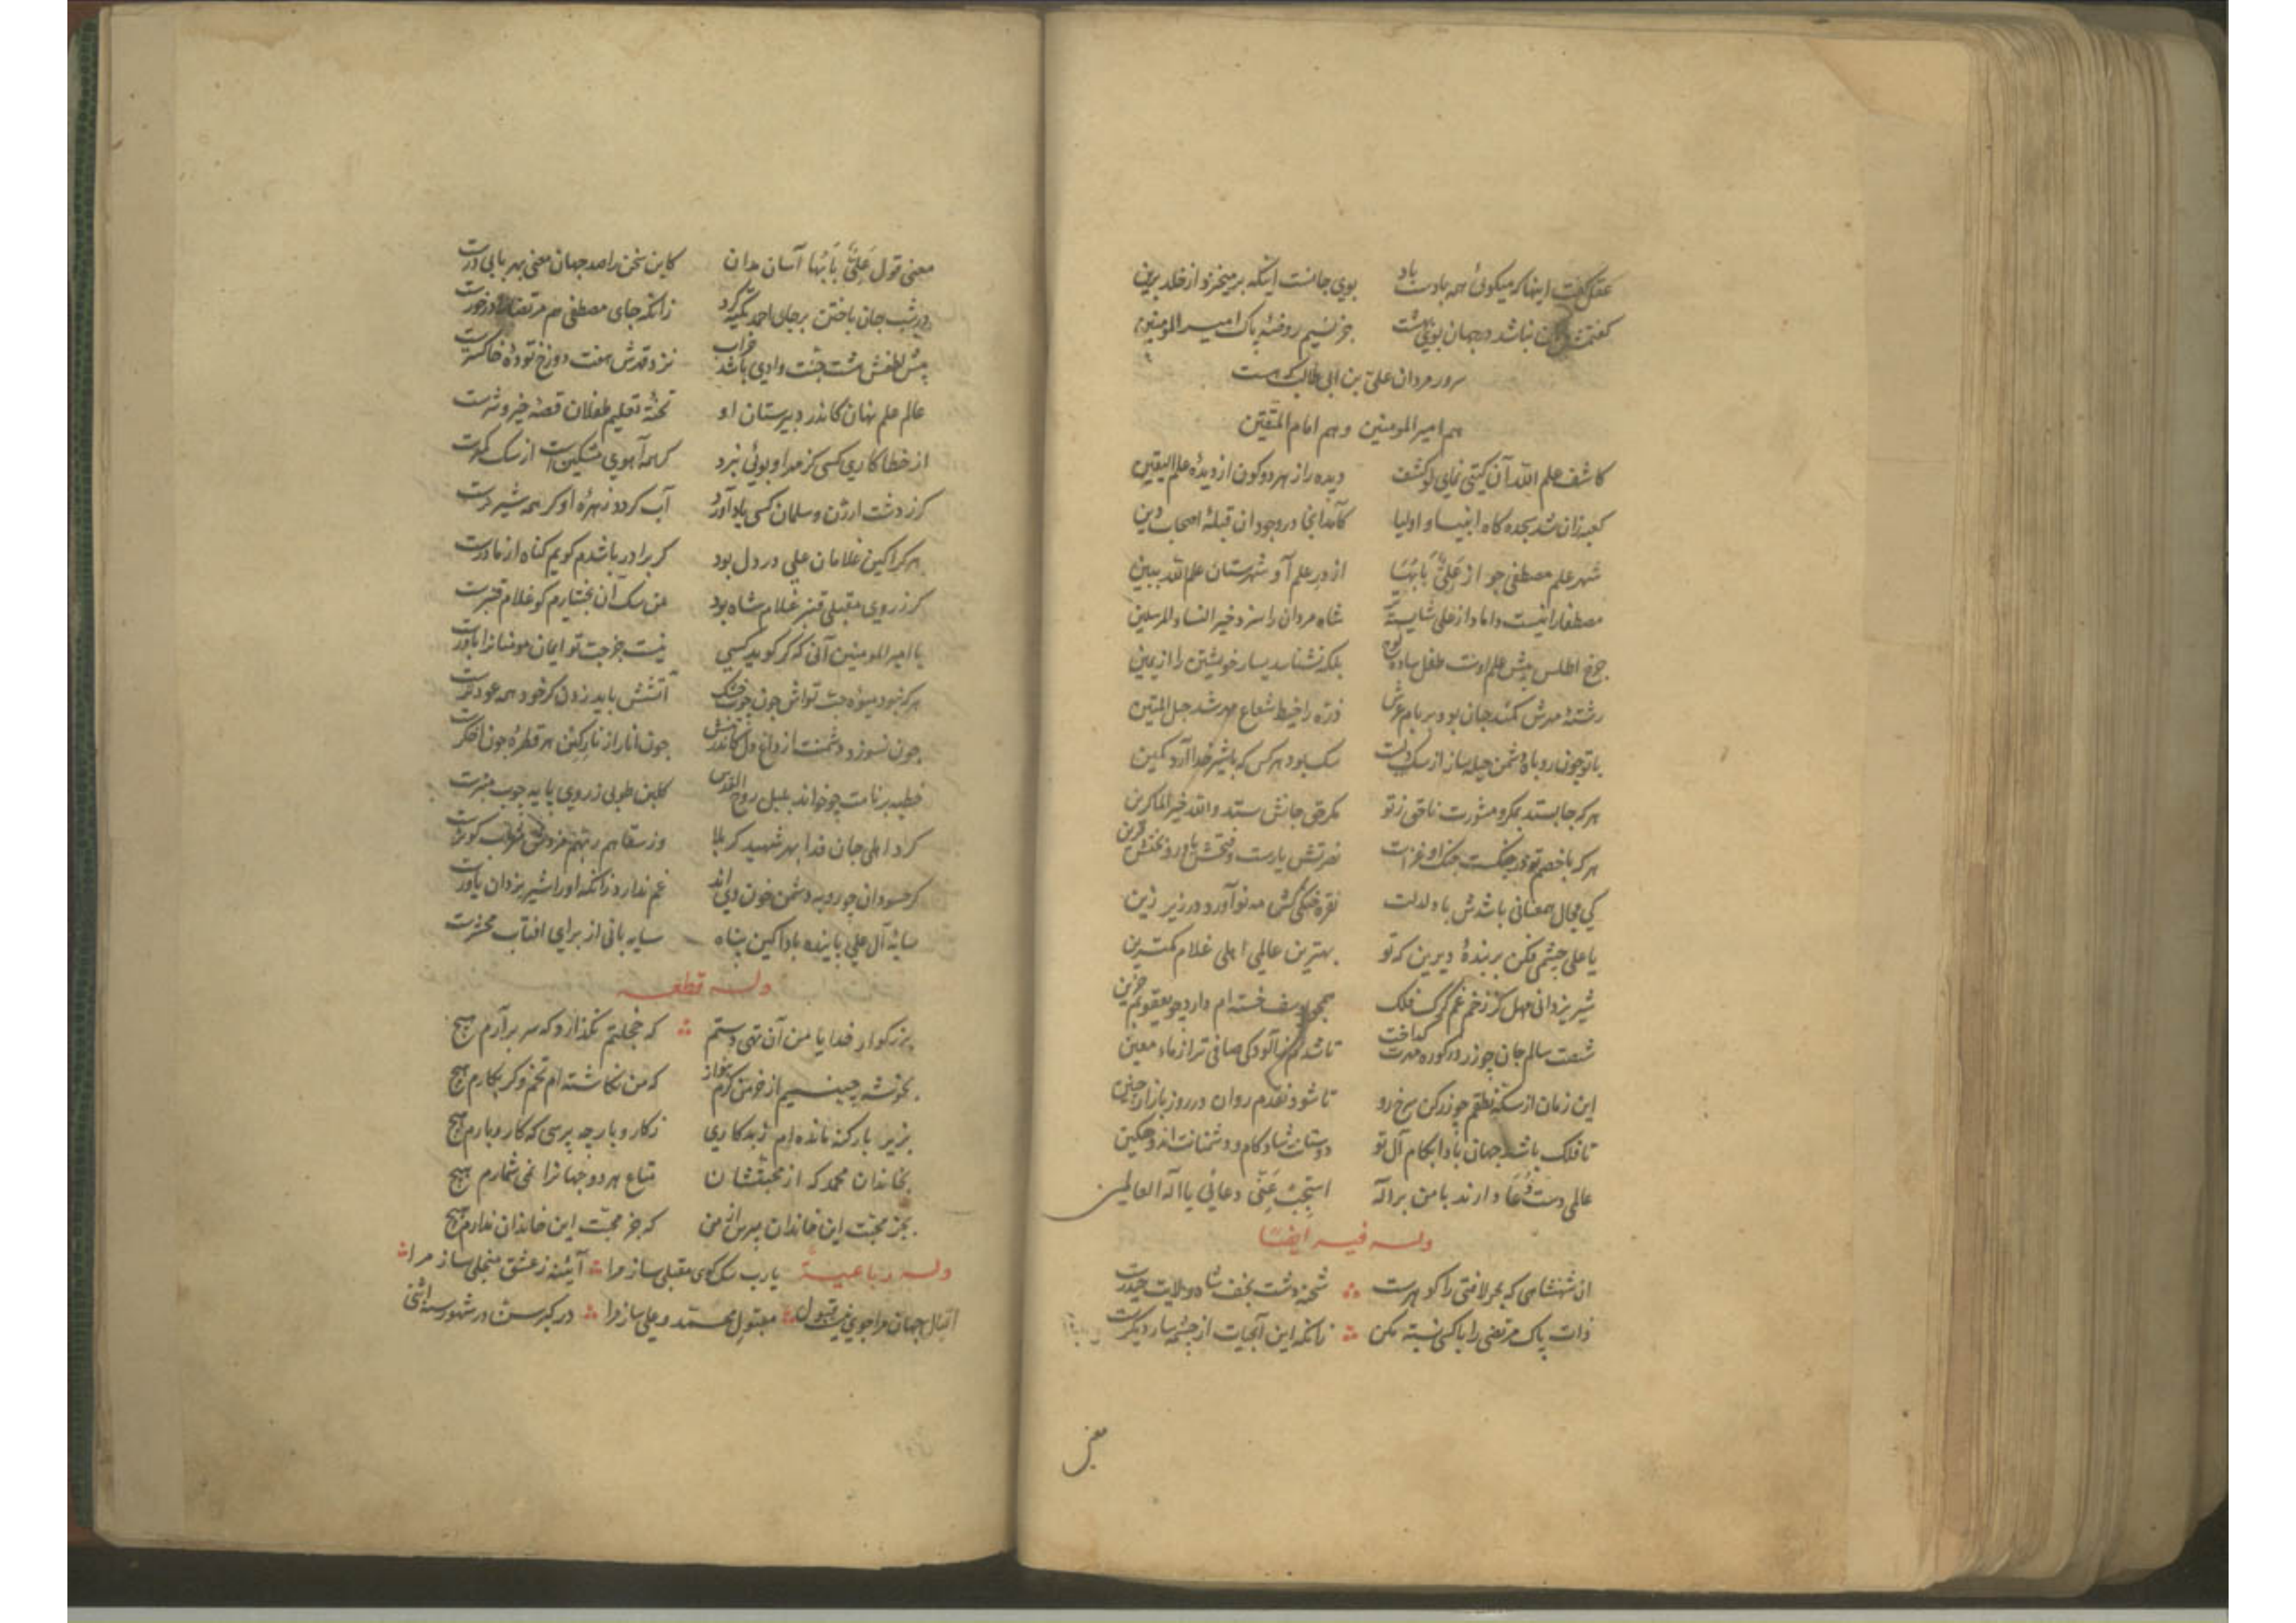 عقل گفت اینها که میگوئی همه بادست باد بوی جانست اینکه برمیخیزد از خلد برین
گفتمش این نباشد در جهان بوی بهشت جز نسیم روضهٔ پاک امیر المومنین
سرور مردان علی بن ابی طالب که هست
هم امیر المومنین و هم امام المتقین
کاشف علم الله آن گیتی نمای لو کشف دیده راز هر دو کون از دیدهٔ علم الیقین
کعبه زان شد سجده گاه انبیا و اولیا کآمد آنجا در وجود آن قبلهٔ اصحاب دین
شهر علم مصطفی جو از عَلِیٌّ بَابُهَا از در علم آ و شهرستان علم الله ببین
مصطفا را نیست داماد از علی شایسته‌تر شاه مردان را سزد خیر النسا و المرسلین
چرخ اطلس پیش علم اوست طفل ساده لوح بلکه نشناسد یسار خویشتن را از یمین
رشتهٔ مهرش کمند جان بود بر بام عرش ذره را خیط شعاع مهر شد حبل المتین
با تو چون روباه دشمن حیله ساز از سگ دلیست سگ بود هر کس که با شیر خدا آرد کمین
هر که جا بستد بمکر و مشورت ناحق ز تو مکر حق جانش ستد والله خیر الماکرین
هر که با خصم تو در جنگست جنگ او غزاست نصرتش یارست و فتحش یاور و بختش قرین
کی مجال همعنانی باشدش با دلدلت نقره خنگی کش مه نو آورد در زیر زین
یا علی چشمی فکن بر بندهٔ دیرین که تو بهترین عالمی اهلی غلام کمترین
شیر یزدانی مهل کز زخم غم گرگ فلک همچو یوسف خسته‌ام دارد چو یعقوبم حزین
شصت سالم جان چو زر در کوره مهرت گداخت تا شدم ز آلودگی صافی تر از ماء معین
این زمان از سکهٔ نظقم چو زر کن سرخ رو تا شود نقدم روان در روز بازار چنین
تا فلک باشد جهان بادا بکام آل تو دوستانت شادکام و دشمنانت اندوهگین
عالمی دست دُعَا دارند با من بر اله استجِب عَنّی دعائی یا اله العالمین
وله فیه ایضا
آن شهنشاهی که بحر لافتی را گوهرست شحنه دشت نجف شاه ولایت حیدرست
ذات پاک مرتضی را با کسی نسبت مکن زانکه این آبحیات از چشمه سار دیگرست
معنی
معنی قول عَلِیٌّ بَابُهَا آسان مدان کاین سخن را صد جهان معنی بهر بابی درست
در شب جان باختن بر جای احمد تکیه کرد زانکه جای مصطفی هم مرتضا را درخورست
پیش لطفش هشت جنت وادیی باشد خراب نزد قدرش هفت دوزخ تودهٔ خاکسترست
عالم علم نهان کاندر دبیرستان او تختهٔ تعلیم طفلان قصهٔ خیر و شرست
از خطاکاری کسی کز مهر او بوئی نبرد گر همه آهوی مشکین است از سگ کمترست
گر ز دشت ارژن و سلمان کسی یاد آورد آب گردد زهرهٔ او گر همه شیر نرست
هر کرا کین غلامان علی در دل بود گر برادر باشدم گویم گناه از مادرست
گر ز روی مقبلی قنبر غلام شاه بود من سگ آن بختیارم کو غلام قنبرست
یا امیر المومنین آنی که گر گوید کسی نیست جز حبت تو ایمان مومنانرا باورست
هر که نبود میوه حبت تواش چون چوب خشک آتشش باید زدن گر خود همه عود ترست
چون نسوزد دشمنت از داغ دل کاندر تنش چون انار از نار کین هر قطره چون اخگرست
خطبه بر نامت چو خواند بلبل روح القدس گلبن طوبی ز روی پایه چوب منبرست
کرد اهلی جان فدا بهر شهید کربلا وز سقاهم ربهم مزدش شراب کوثرست
گر حسودان چو روبه دشمن خون ویند غم ندارد زانکه او را شیر یزدان یاورست
سایهٔ آل علی پاینده بادا کین پناه سایه بانی از برای آفتاب محشرست
وله قطعه
بزرگوار خدایا من آن تهی دستم که خجلتم نگذارد که سر برآرم هیچ
بخوشه چینیم از خرمن کرم بنواز که من نکاشته‌ام تخم و گر بکارم هیچ
بزیر بار گنه مانده‌ام ز بدکاری ز کار و بار چه پرسی که کار و بارم هیچ
بخاندان محمد که از محبتشان متاع هر دو جهانرا نمی شمارم هیچ
بجز محبت این خاندان مپرس از من که جز محبت این خاندان ندارم هیچ
وله رباعیة یارب سگ کوی مقبلی ساز مرا آئینه ز عشق منجلی ساز مرا
اقبال جهان مرا جوی نیست قبول مقبول محمد و علی ساز مرا